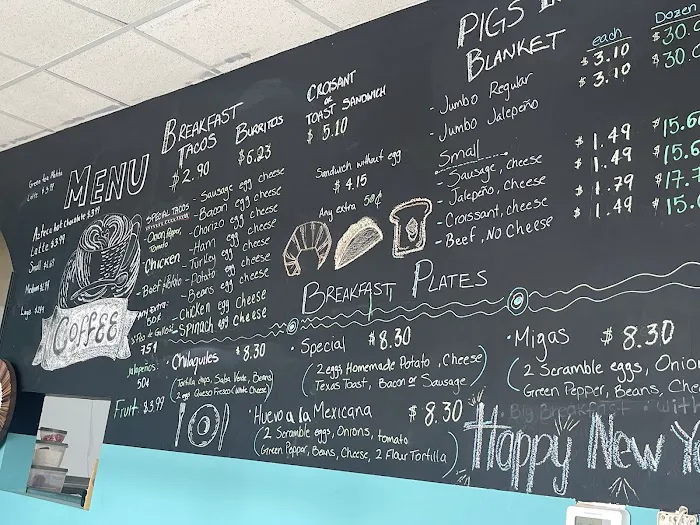 MENU
Green Tea Matcha
Latte $3.99
Azteca hot chocolate $3.99
Latte $3.99
Small
Medium
Large
COFFEE
BREAKFAST
TACOS
$2.90
BURRITOS
$6.23
SPECIAL TACOS
Onion, Pepper,
Tomato
Chicken
- Beef, Potato
75¢
Jalapeños
50¢
Fruit $3.99
- Sausage egg cheese
- Bacon egg cheese
- Chorizo egg cheese
- Ham egg cheese
- Turkey egg cheese
- Potato egg cheese
- Beans egg cheese
- Chicken egg cheese
- Spinach egg cheese
CROISANT
or
TOAST SANDWICH
$5.10
Sandwich without egg
$4.15
Any extra 50¢
PIGS
BLANKET
each
Dozen
- Jumbo Regular $3.10 $30.
- Jumbo Jalapeño $3.10 $30.
Small
- Sausage, cheese $1.49 $15.6
- Jalapeño, Cheese $1.49 $15.6
- Croissant, cheese $1.79 $17.7
- Beef, No Cheese $1.49 $15.
BREAKFAST PLATES
• Chilaquiles $8.30
(Tortilla chips, Salsa Verde, Beans)
2 egg Queso Fresco (White Cheese)
• Special $8.30
(2 eggs Homemade Potato, Cheese)
Texas Toast, Bacon or Sausage
• Migas $8.30
(2 Scramble eggs, Onion
Green Pepper, Beans, Che
• Huevo a la Mexicana $8.30
(2 Scramble eggs, Onions, tomato
Green Pepper, Beans, Cheese, 2 Flour Tortilla)
Big Breakfast with
Happy New Y